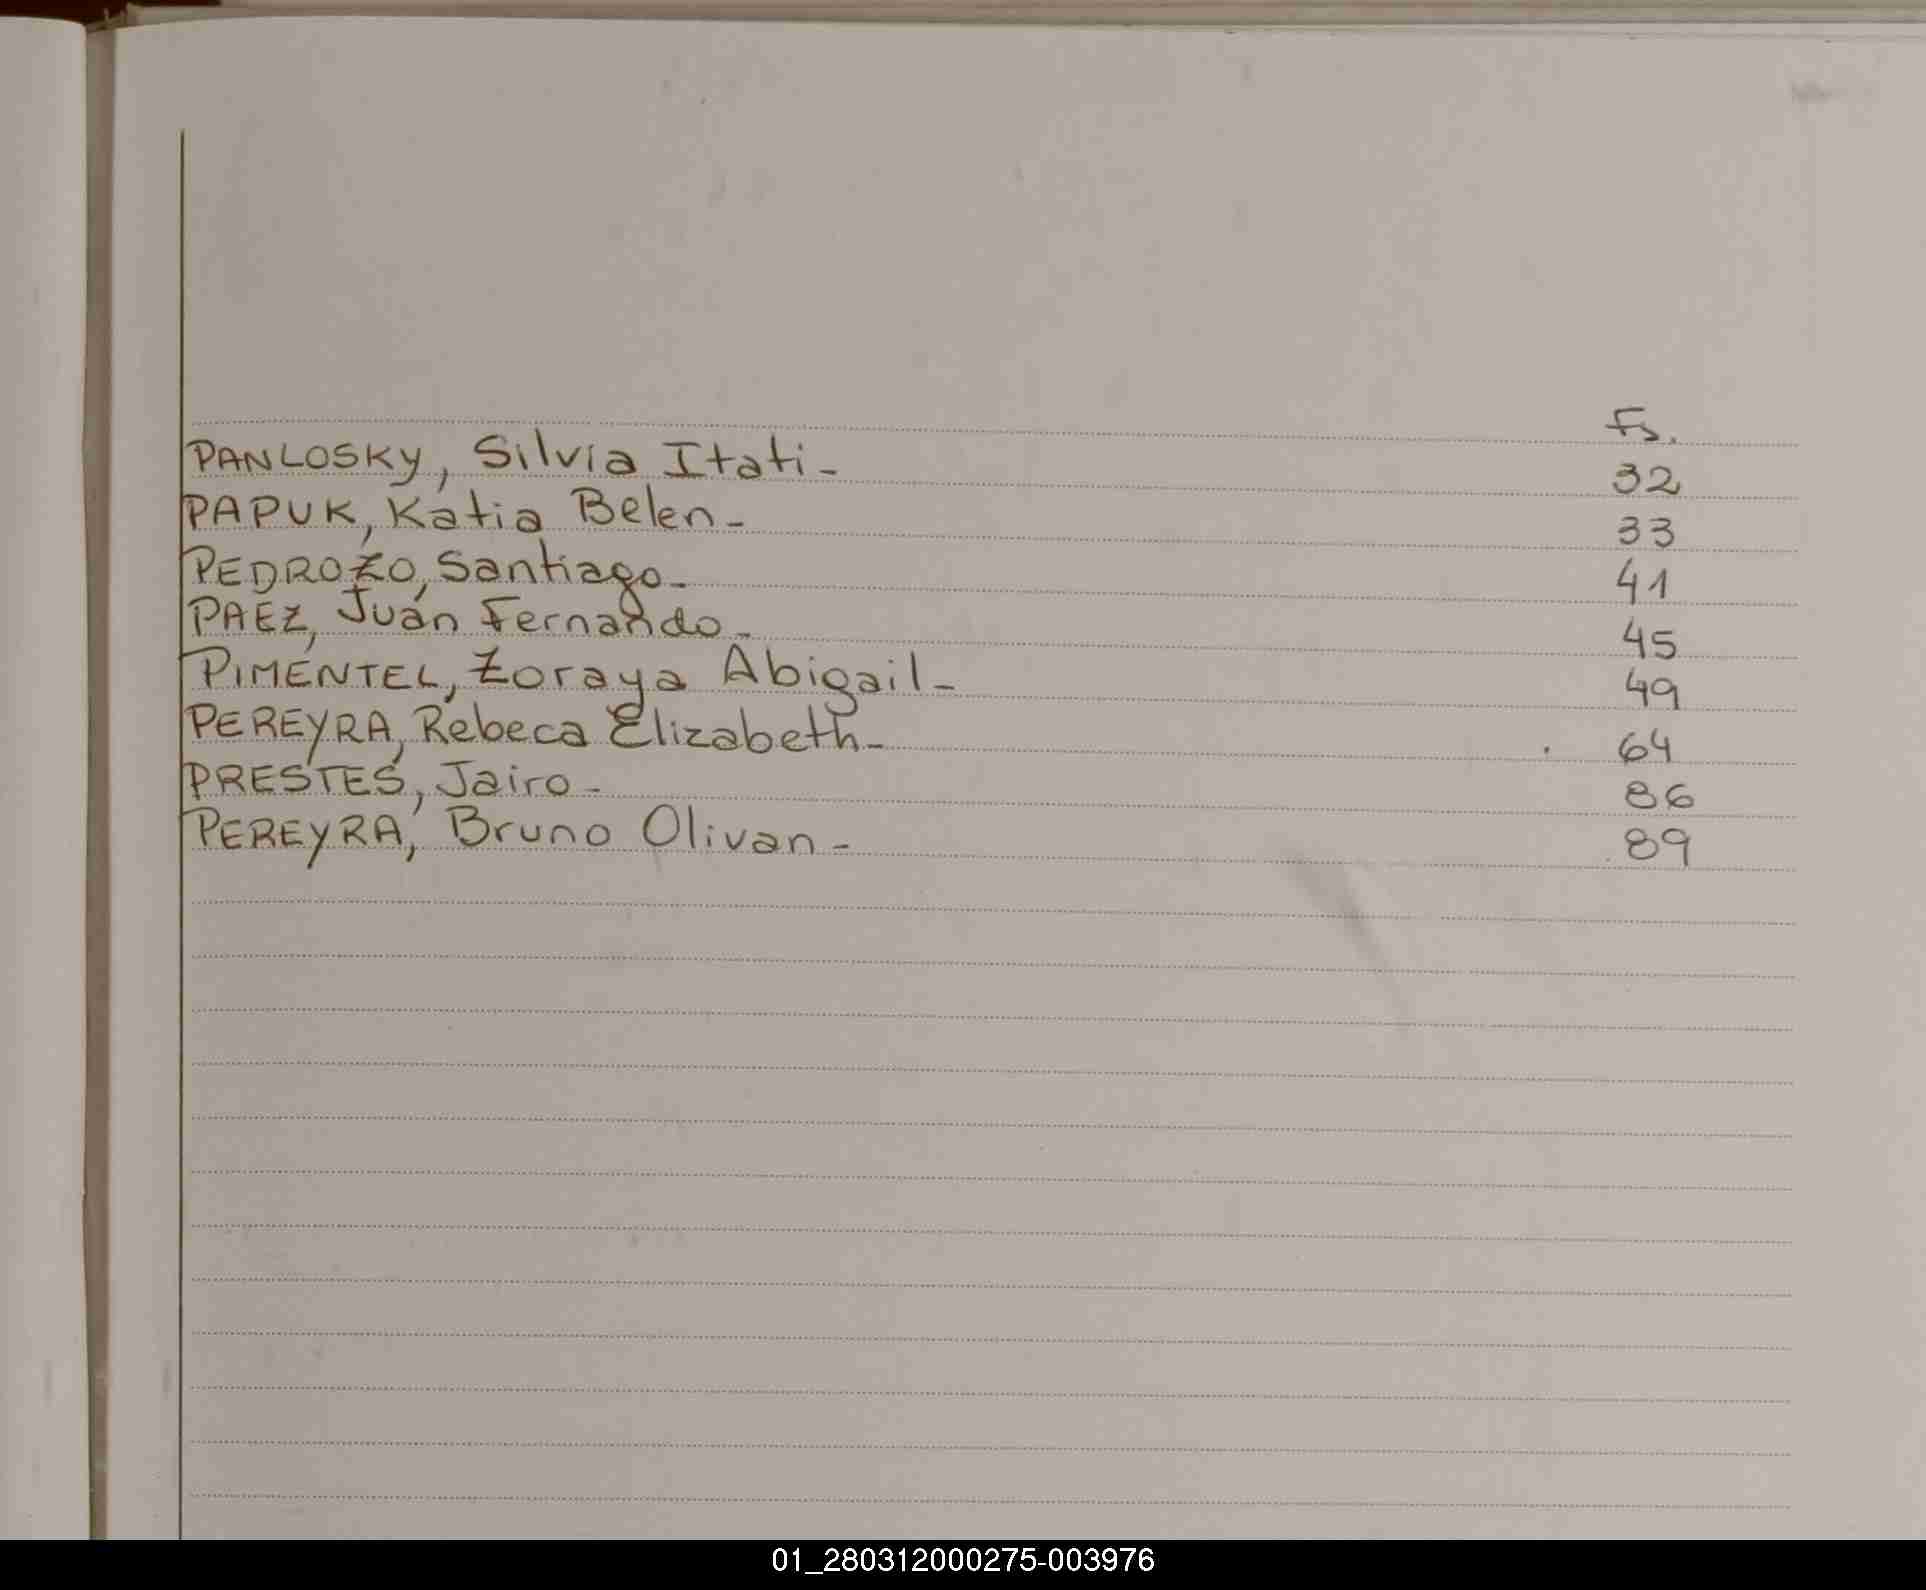 Fs.
PANLOSKY, Silvia Itati- 32
PAPUK, Katia Belen- 33
PEDROZO, Santiago- 41
PAEZ, Juan Fernando- 45
PIMENTEL, Zoraya Abigail- 49
PEREYRA, Rebeca Elizabeth- 64
PRESTES, Jairo- 86
PEREYRA, Bruno Olivan- 89
01_280312000275-003976